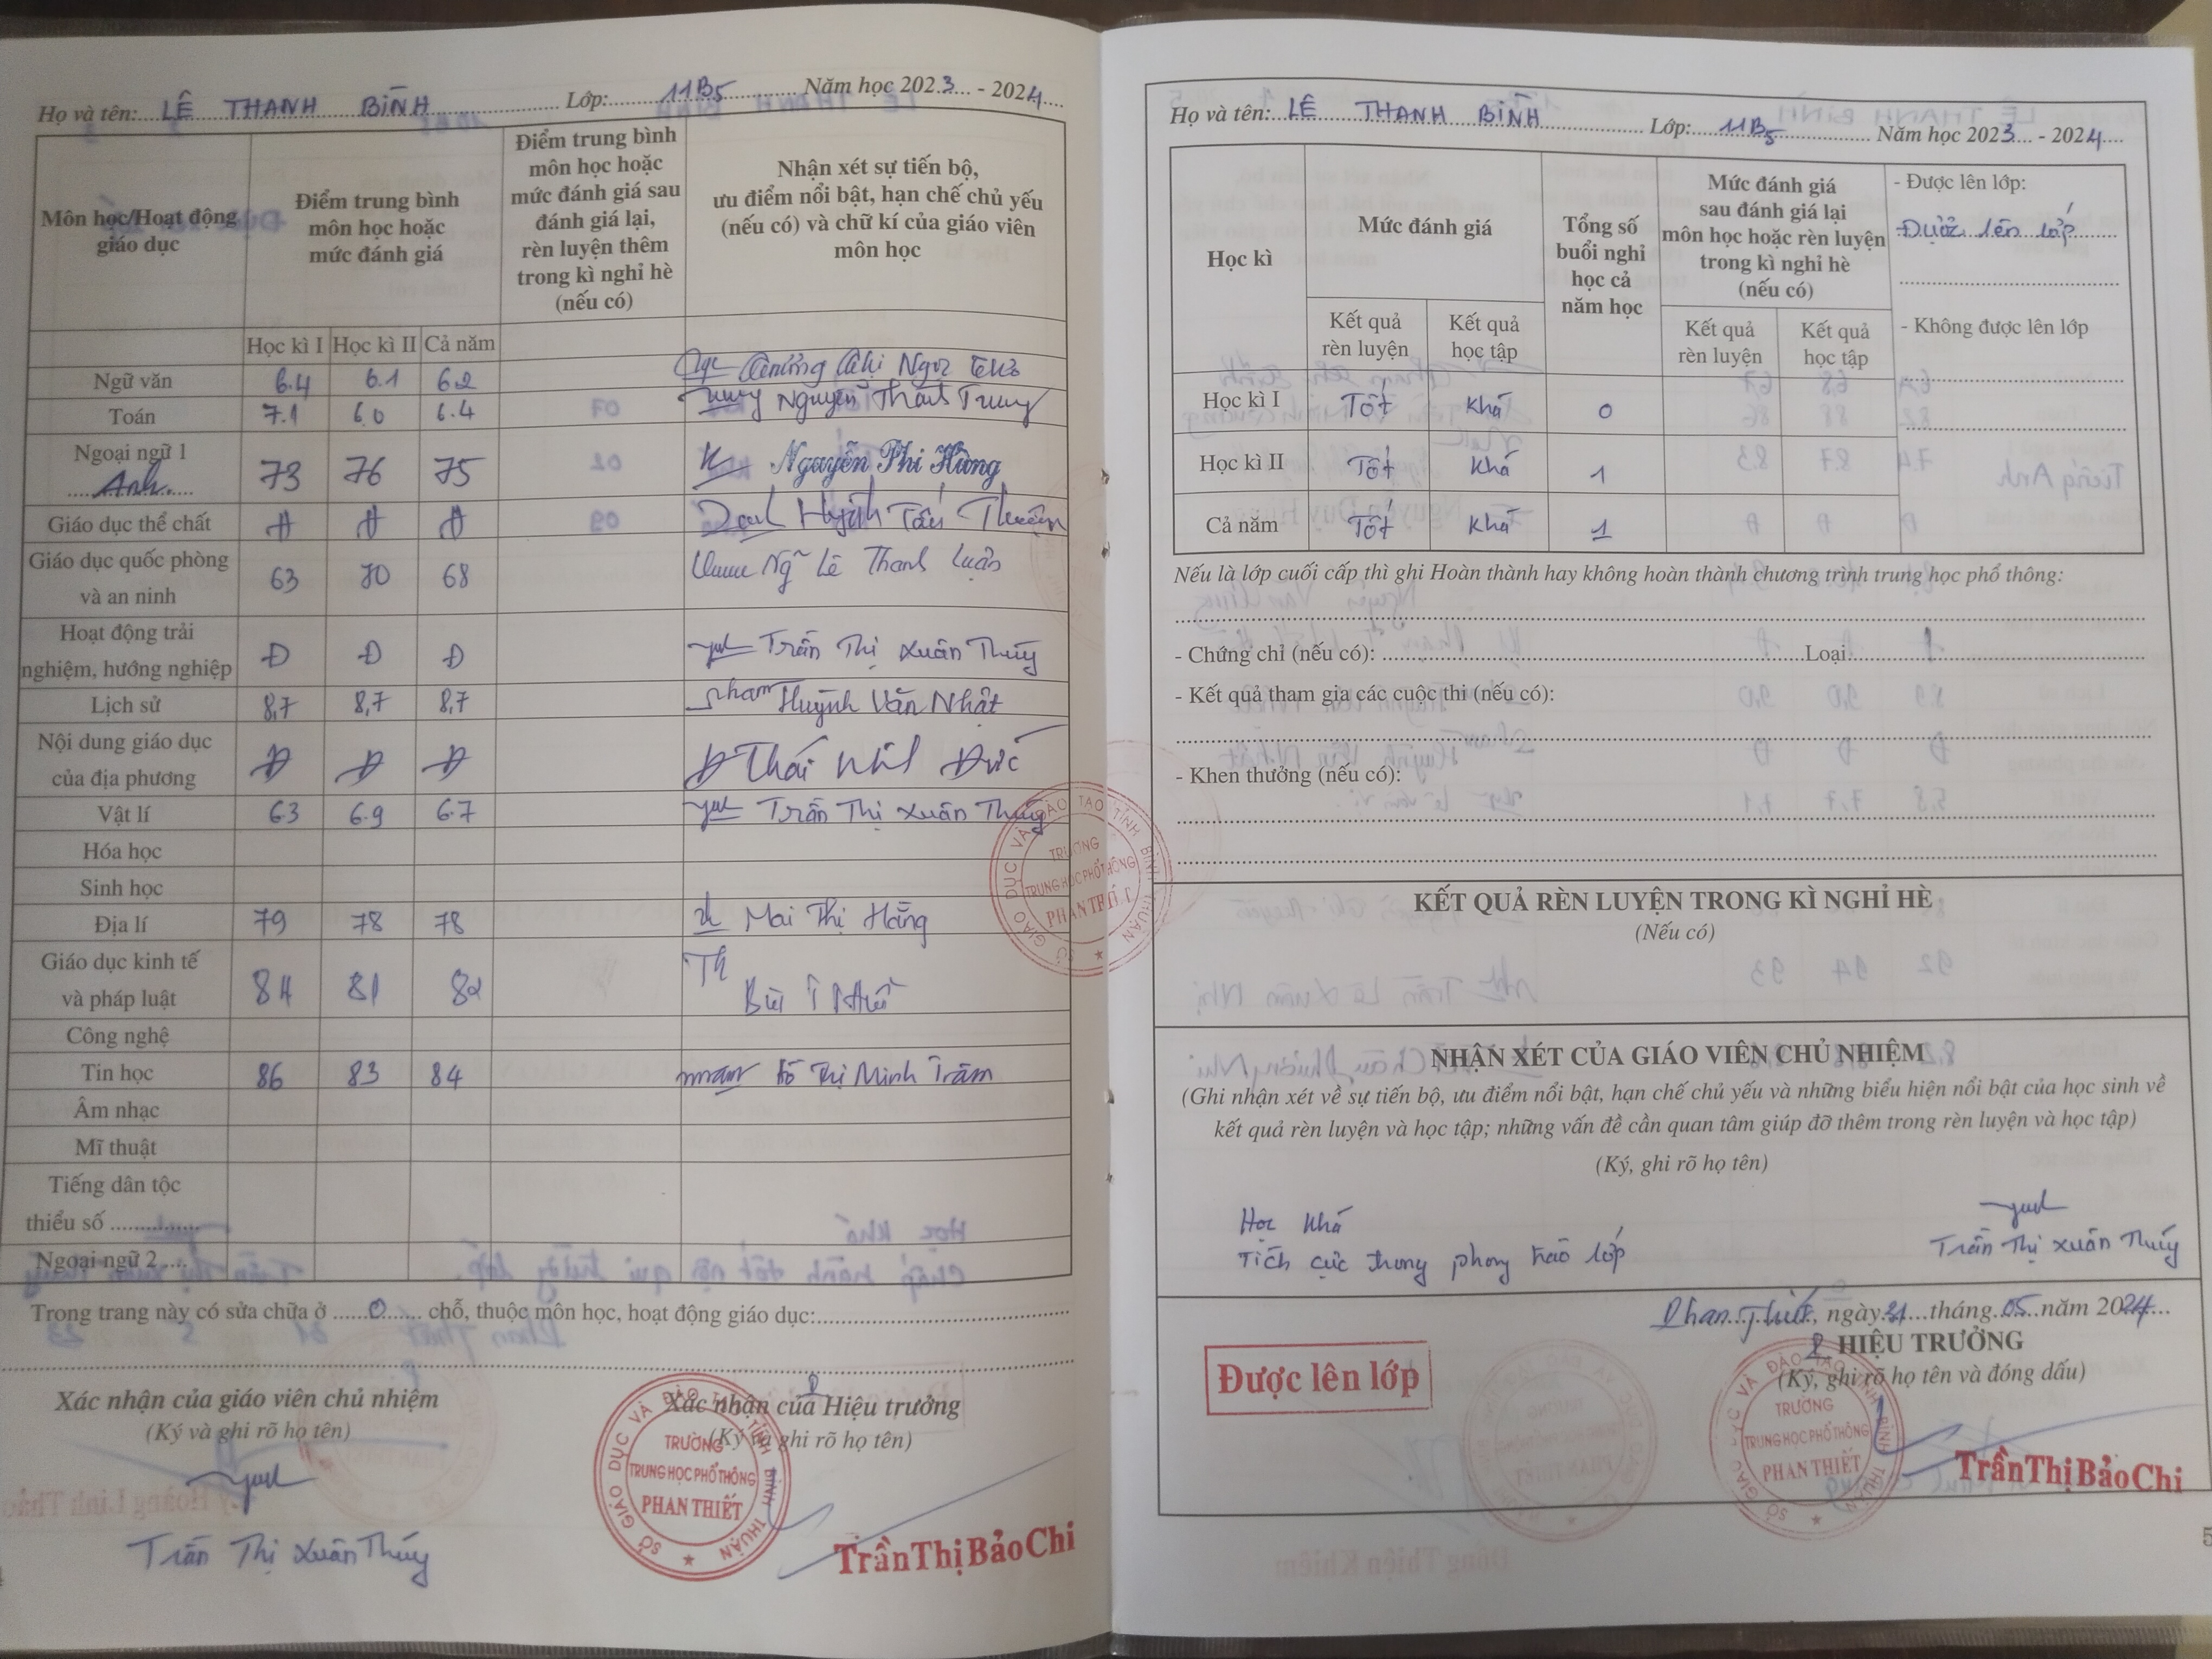 Họ và tên: LÊ THANH BÌNH Lớp: 11B5 Năm học 2023 - 2024
Môn học/Hoạt động giáo dục
Điểm trung bình môn học hoặc mức đánh giá
Điểm trung bình môn học hoặc mức đánh giá sau đánh giá lại, rèn luyện thêm trong kì nghỉ hè (nếu có)
Nhận xét sự tiến bộ, ưu điểm nổi bật, hạn chế chủ yếu (nếu có) và chữ kí của giáo viên môn học
Học kì I Học kì II Cả năm
Ngữ văn 6.4 6.1 6.2
Toán 7.1 6.0 6.4 Nguyễn Thành Trung
Ngoại ngữ 1 Anh 73 76 75 Nguyễn Phi Hùng
Giáo dục thể chất Đ Đ Đ Huỳnh Tấn
Giáo dục quốc phòng và an ninh 63 70 68 Ng~ Lê Thanh Luận
Hoạt động trải nghiệm, hướng nghiệp Đ Đ Đ Trần Thị Xuân Thúy
Lịch sử 8,7 8,7 8,7 Huỳnh Văn Nhật
Nội dung giáo dục của địa phương Đ Đ Đ Thái Đức
Vật lí 6.3 6.9 6.7 Trần Thị Xuân Thúy
Hóa học
Sinh học
Địa lí 79 78 78 Mai Thị Hằng
Giáo dục kinh tế và pháp luật 84 81 82 Bùi
Công nghệ
Tin học 86 83 84 Thị Minh Trâm
Âm nhạc
Mĩ thuật
Tiếng dân tộc thiểu số
Ngoại ngữ 2
Trong trang này có sửa chữa ở 0 chỗ, thuộc môn học, hoạt động giáo dục:
Xác nhận của giáo viên chủ nhiệm
(Ký và ghi rõ họ tên)
Trần Thị Xuân Thúy
Xác nhận của Hiệu trưởng
(Ký và ghi rõ họ tên)
SỞ GIÁO DỤC VÀ ĐÀO TẠO TỈNH BÌNH THUẬN
TRƯỜNG
TRUNG HỌC PHỔ THÔNG
PHAN THIẾT
Trần Thị Bảo Chi
Họ và tên: LÊ THANH BÌNH Lớp: 11B5 Năm học 2023 - 2024
Học kì
Mức đánh giá
Tổng số buổi nghỉ học cả năm học
Mức đánh giá sau đánh giá lại môn học hoặc rèn luyện trong kì nghỉ hè (nếu có)
- Được lên lớp:
Được lên lớp
- Không được lên lớp
Kết quả rèn luyện Kết quả học tập Kết quả rèn luyện Kết quả học tập
Học kì I Tốt Khá 0
Học kì II Tốt Khá 1
Cả năm Tốt Khá 1
Nếu là lớp cuối cấp thì ghi Hoàn thành hay không hoàn thành chương trình trung học phổ thông:
- Chứng chỉ (nếu có): Loại
- Kết quả tham gia các cuộc thi (nếu có):
- Khen thưởng (nếu có):
KẾT QUẢ RÈN LUYỆN TRONG KÌ NGHỈ HÈ
(Nếu có)
NHẬN XÉT CỦA GIÁO VIÊN CHỦ NHIỆM
(Ghi nhận xét về sự tiến bộ, ưu điểm nổi bật, hạn chế chủ yếu và những biểu hiện nổi bật của học sinh về
kết quả rèn luyện và học tập; những vấn đề cần quan tâm giúp đỡ thêm trong rèn luyện và học tập)
(Ký, ghi rõ họ tên)
Học Khá
Tích cực trong phong trào lớp
Trần Thị Xuân Thúy
Phan Thiết, ngày 31 tháng 05 năm 2024
HIỆU TRƯỞNG
(Ký, ghi rõ họ tên và đóng dấu)
Được lên lớp
SỞ GIÁO DỤC VÀ ĐÀO TẠO TỈNH BÌNH THUẬN
TRƯỜNG
TRUNG HỌC PHỔ THÔNG
PHAN THIẾT
Trần Thị Bảo Chi
5